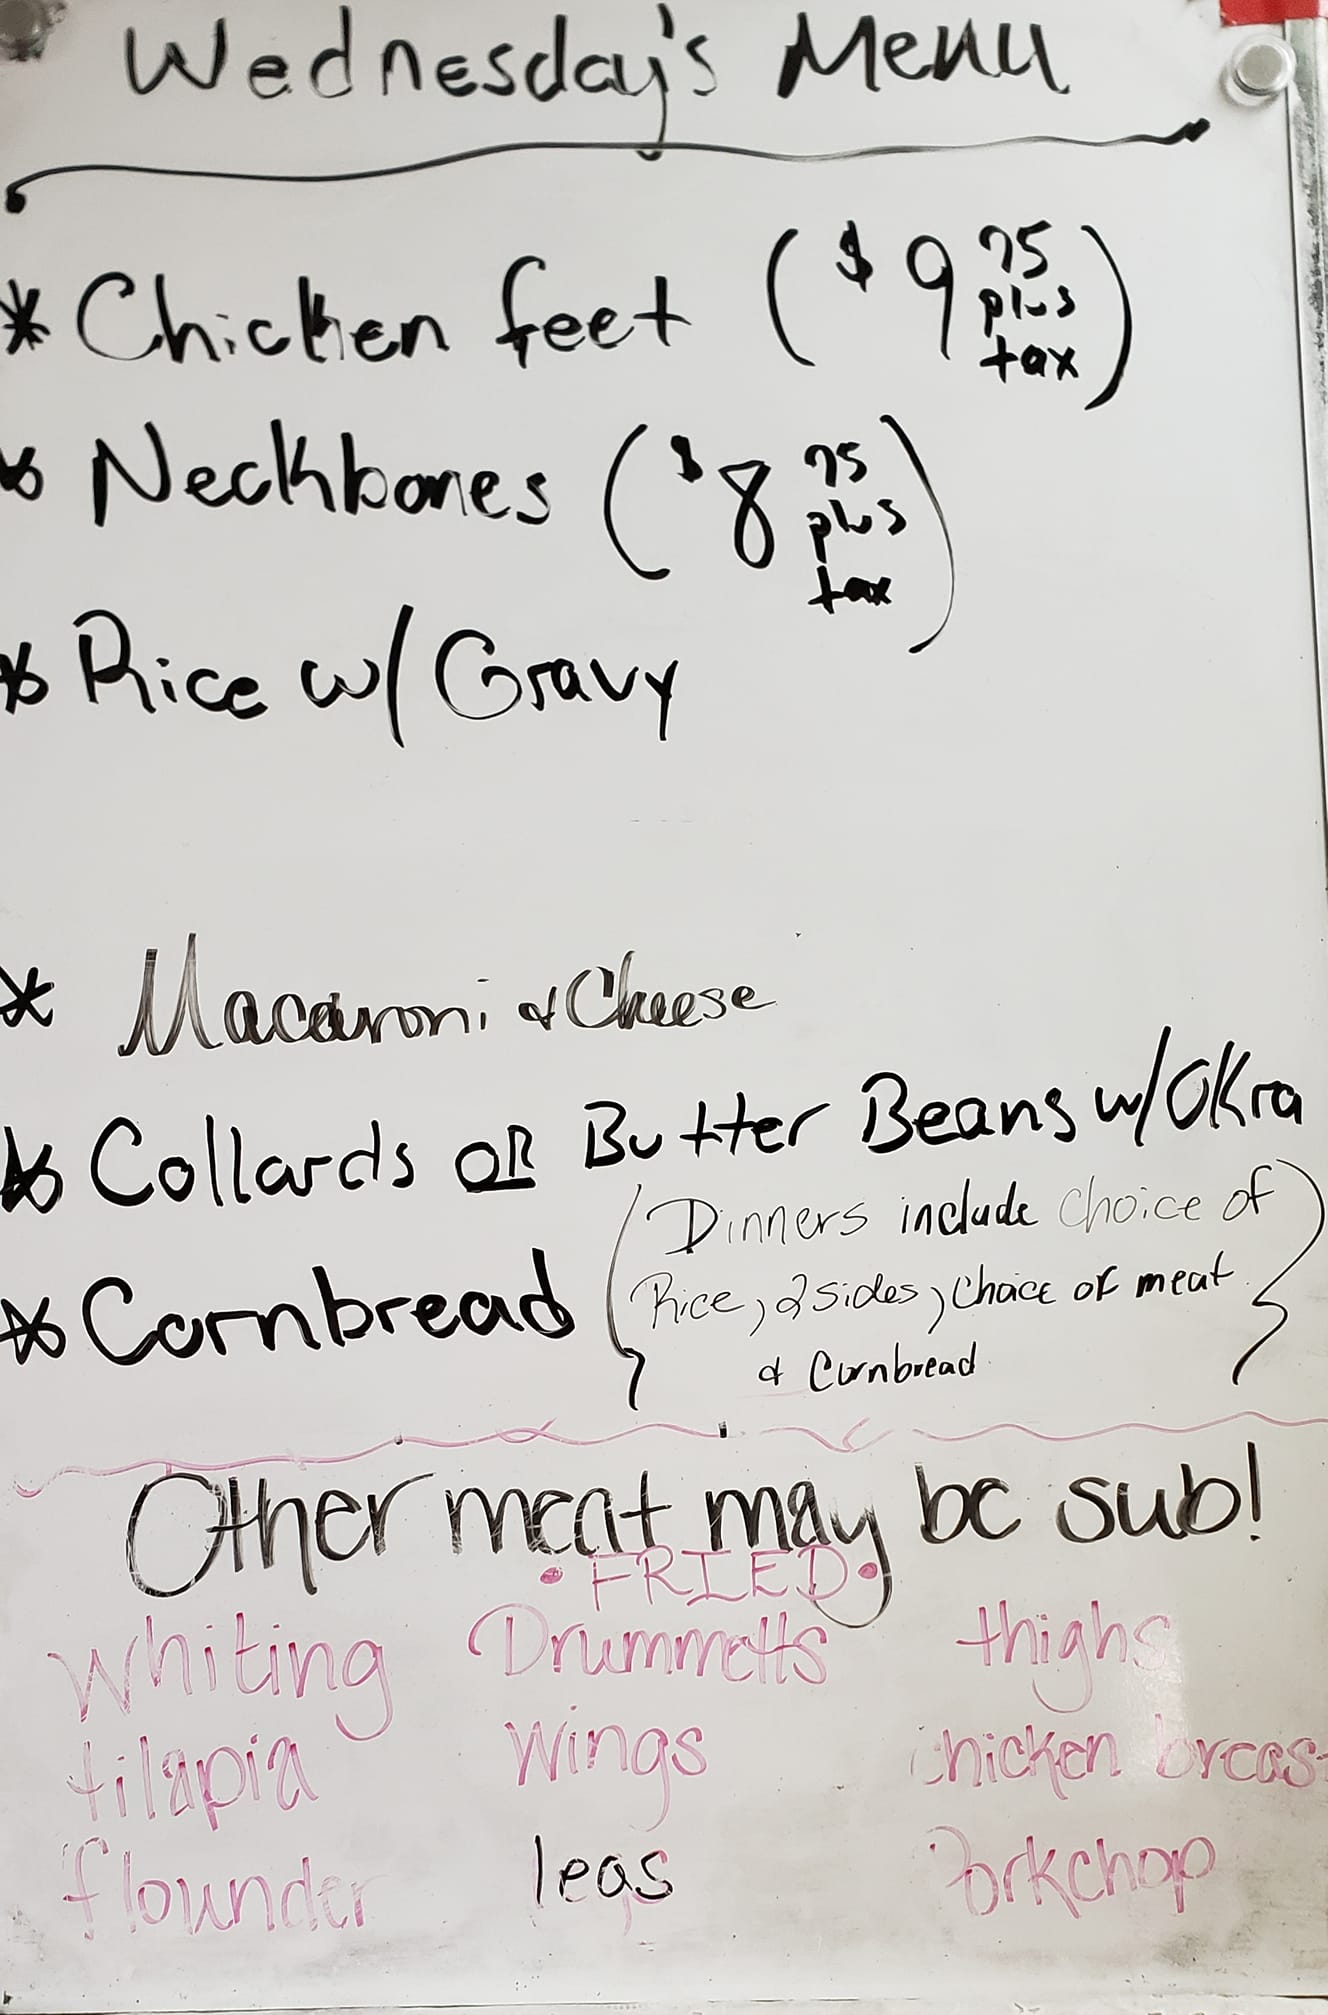 Wednesday's Menu
* Chicken feet ($9 75 plus tax)
* Neckbones ($8 75 plus tax)
* Rice w/ Gravy
* Macaroni & Cheese
* Collards OR Butter Beans w/ Okra
* Cornbread
(Dinners include choice of
Rice, 2 sides, choice of meat
& Cornbread)
Other meat may be sub!
• FRIED •
Whiting Drummetts thighs
tilapia wings chicken breast
flounder legs Porkchop